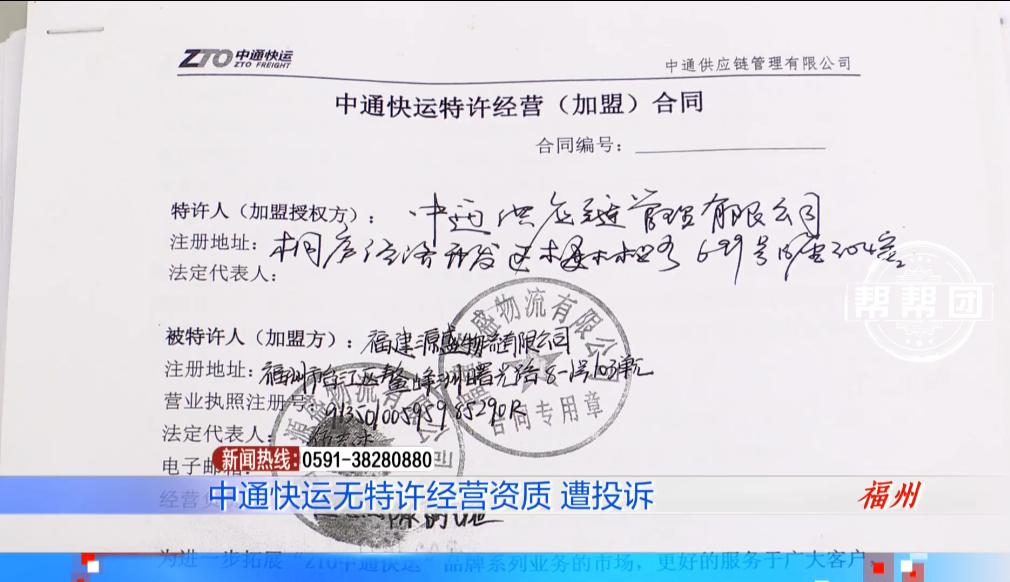 ZTO 中通快运
ZTO FREIGHT
中通供应链管理有限公司
中通快运特许经营（加盟）合同
合同编号：
特许人（加盟授权方）：中通供应链管理有限公司
注册地址：桐庐经济开发区 699号
法定代表人：
帮帮团
被特许人（加盟方）：福建源盛物流有限公司
注册地址：福州市台江区鳌峰洲曙光路8-1号103单元
营业执照注册号：91350100595985290R
法定代表人：
电子邮箱
盛物流有限公
合同专用章
源盛物流有限公司
新闻热线：0591-38280880
中通快运无特许经营资质 遭投诉
福州
为进一步拓展“ZTO中通快运”品牌系列业务的市场，更好的服务于广大客户、